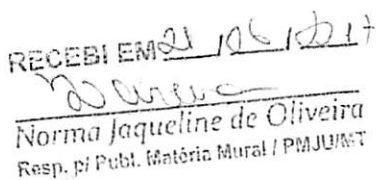 RECEBI EM 21 / 06 / 2017
Norma Jaqueline de Oliveira
Resp. p/ Publ. Matéria Mural / PMJU/MT